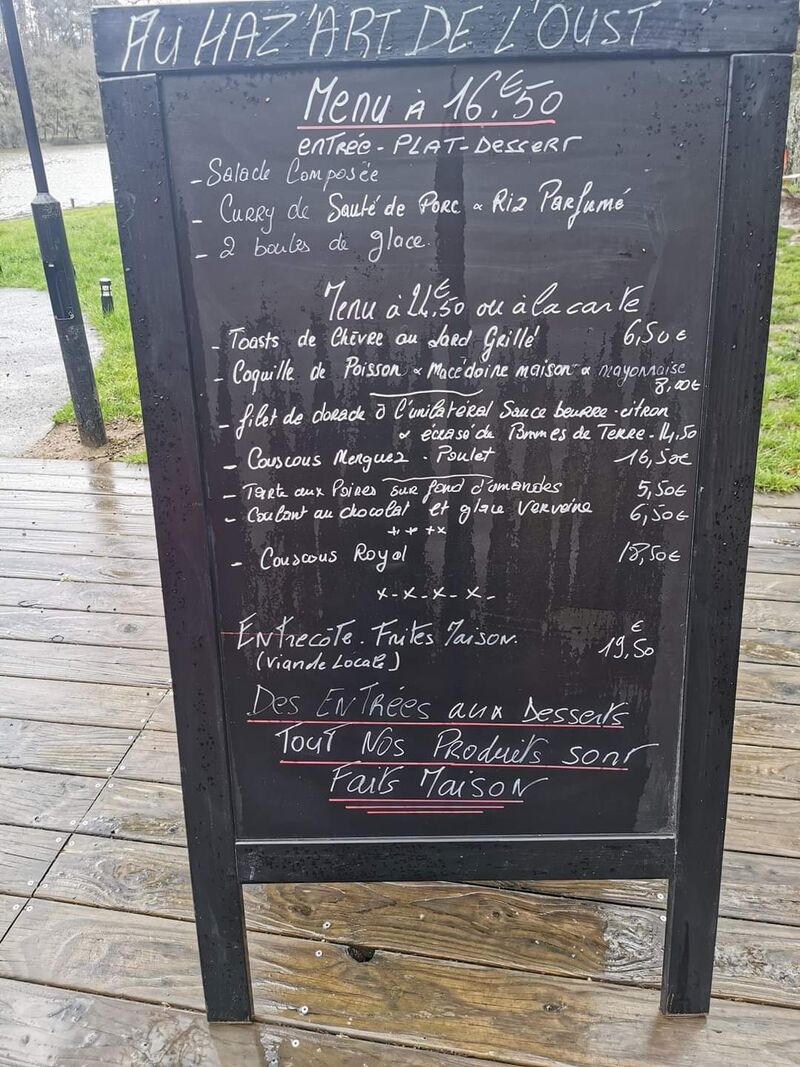 AU HAZ'ART DE L'OUST
Menu à 16,€50
ENTRÉE - PLAT - DESSERT
- Salade Composée
- Curry de Sauté de Porc & Riz Parfumé
- 2 boules de glace.
Menu à 21,€50 ou à la carte
- Toasts de Chèvre au Lard Grillé 6,50€
- Coquille de Poisson & Macédoine maison & mayonnaise
8,00€
- filet de dorade à l'unilatéral Sauce beurre-citron
& écrasé de Pommes de Terre - 14,50
- Couscous Merguez - Poulet 16,50€
- Tarte aux Poires sur fond d'amandes 5,50€
- Coulant au chocolat et glace Verveine 6,50€
- Couscous Royal 18,50€
x-x-x-x-
Entrecôte. Frites Maison. 19,€50
(Viande Locale)
Des Entrées aux Desserts
Tout Nos Produits sont
Faits Maison